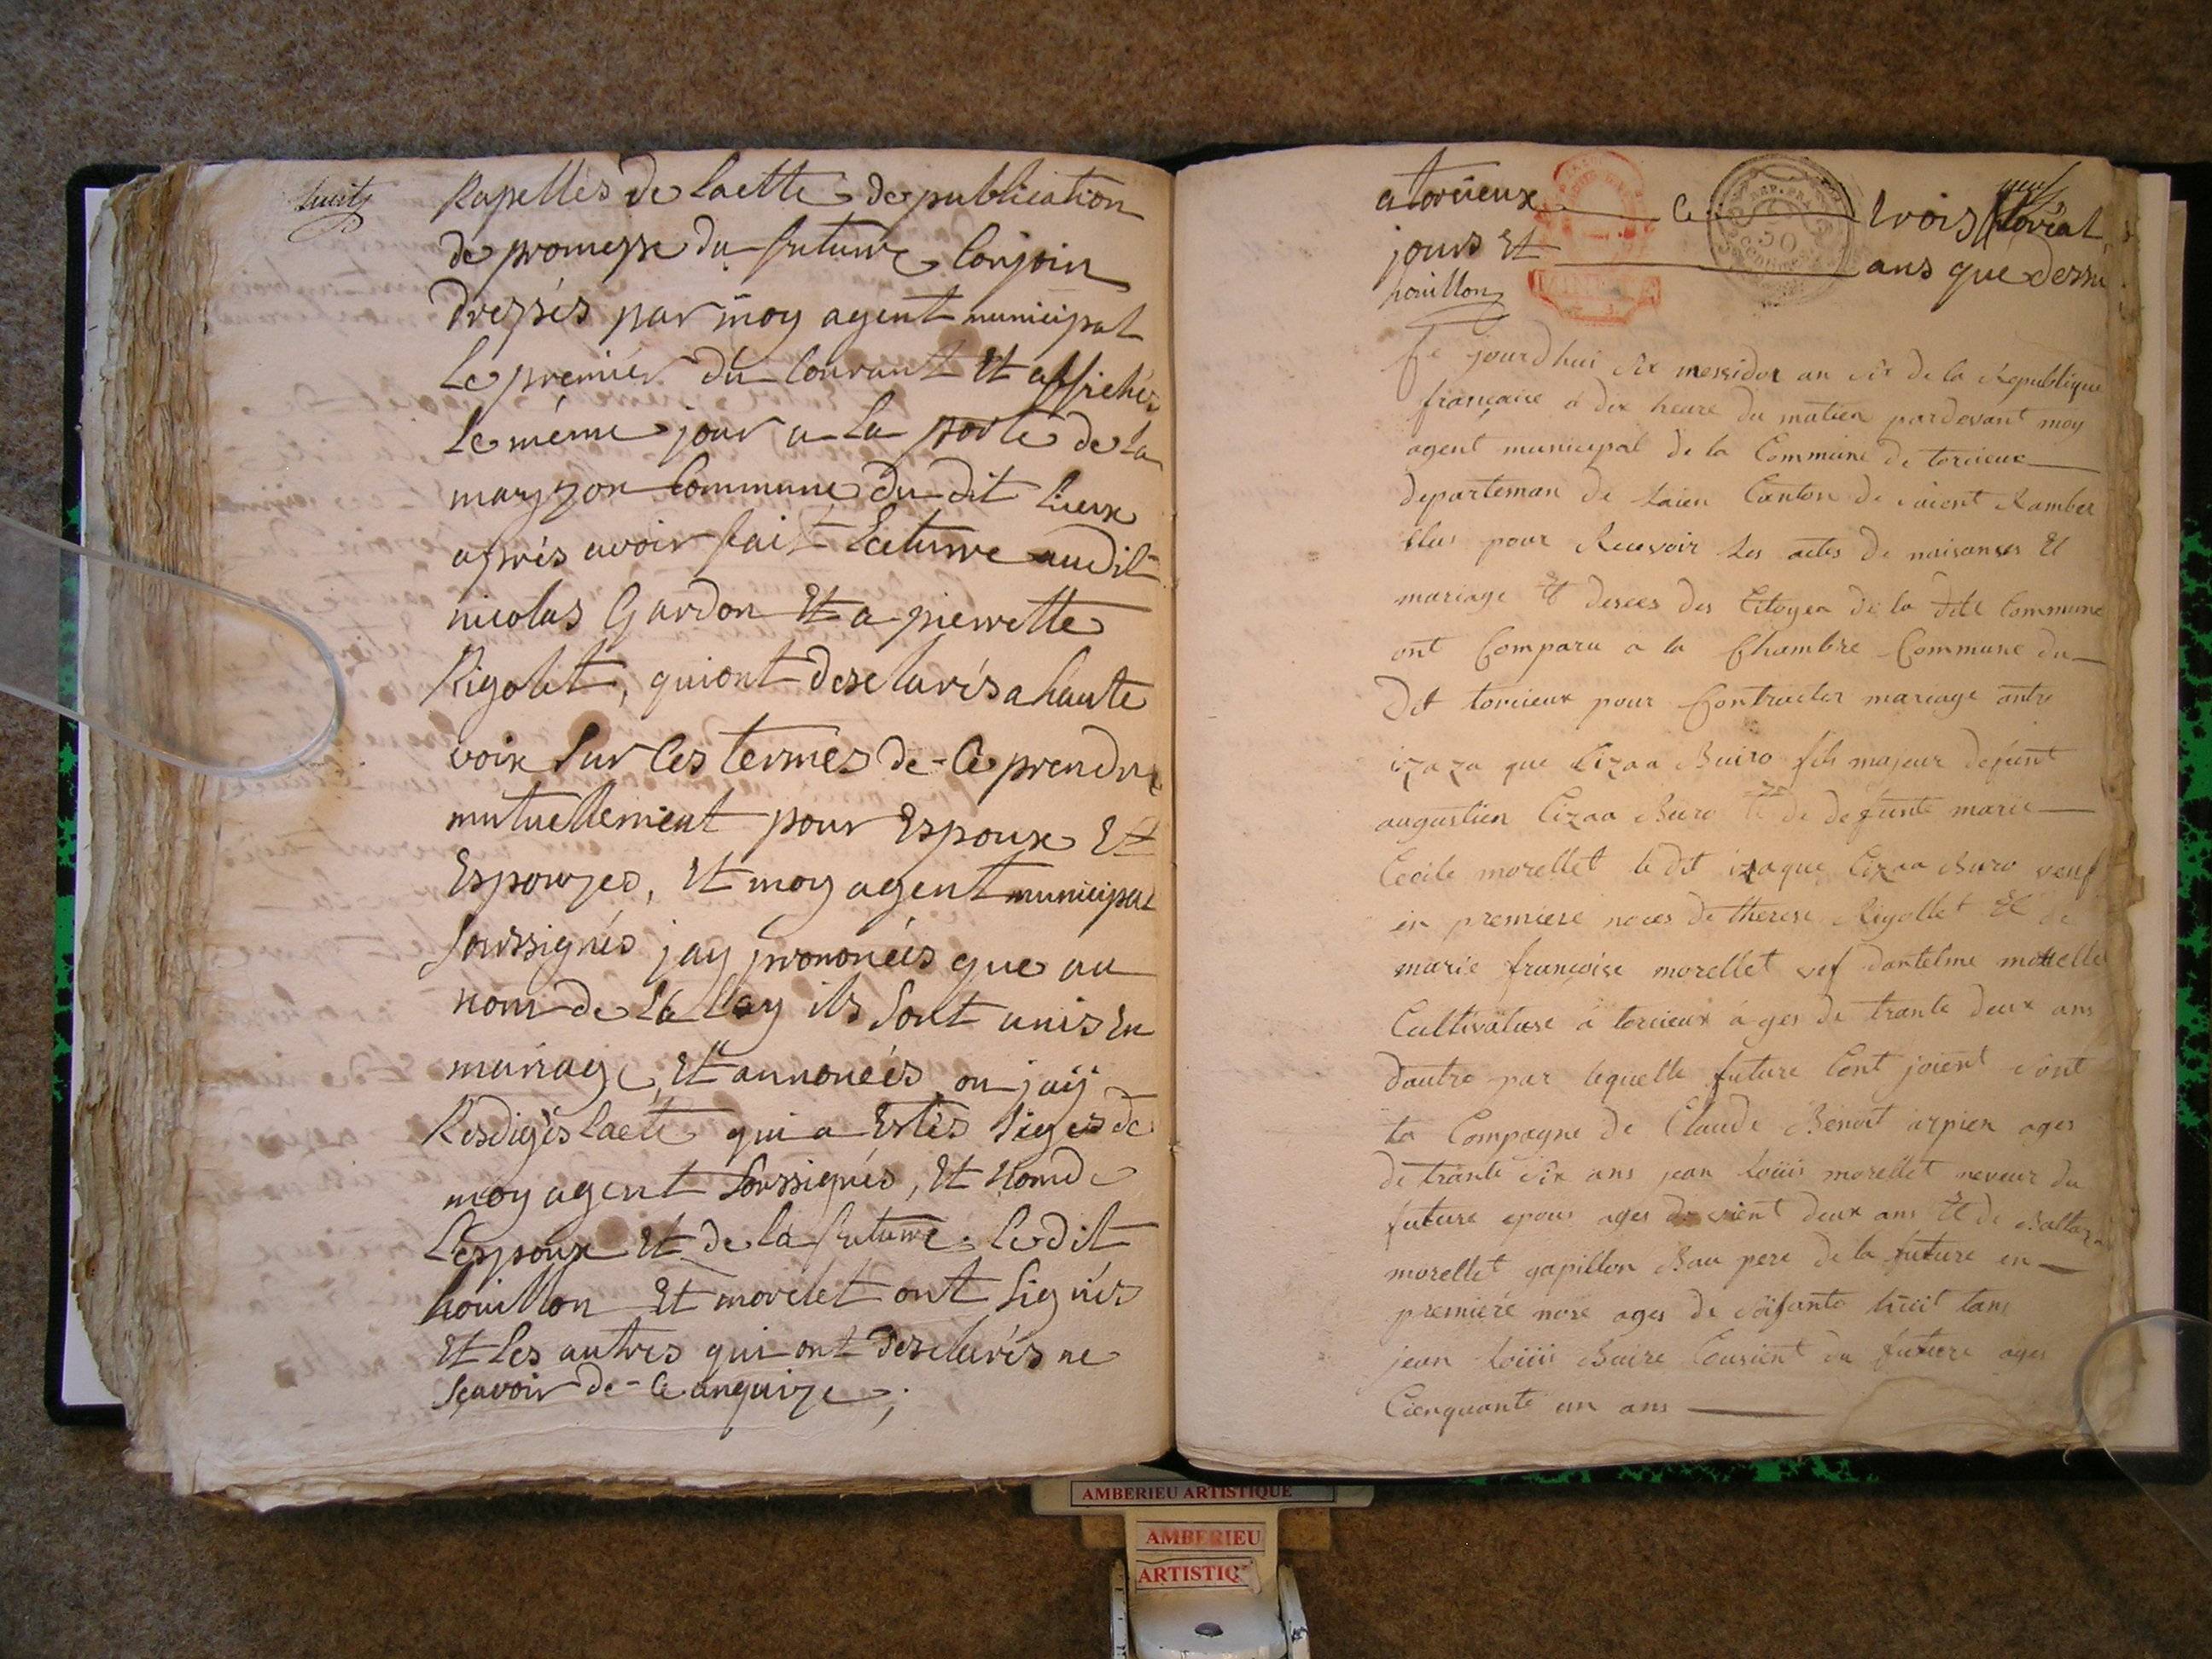 huit
Rapellés de lactte de publication
de promesse du future Conjoin
dressés par moy agent municipal
Le premier du Courant Et affichés
Le méme jour a La porte de La
mayzon Commune du dit Lieux
aprés avoir fait Lecturre audit
nicolas Gardon Et a pierrette
Rigolet, qui ont desclarés a haute
voix Sur Ces termes de Ce prendre
mutuellement pour Espoux Et
Espouzes, Et moy agent municipal
Soussignés jay prononcés que au
nom de La Loy ils Sont unis En
mariage, Et annoncés ou jaÿ
Resdigés lacte qui a Estés Signés de
moy agent Soussignés, Et nom de
L'espoux Et de la future. Le dit
houillon Et morelet ont Signés
Et Les autres qui ont desclarés ne
Sçavoir de Ce anquize,
a torcieux Ce trois floréal neuf
jours Et ans que dessu
houillon
REP. FRA.
50
centimes
Ce jourdhui six messidor an six de la Republique
françaice a dix heure du matien pardevant moy
agent municipal de la Commune de torcieux
departeman de Laien Canton de saient Ramber
Elus pour Recevoir Les actes de naisanses Et
mariage Et deseès des Citoyen de la dite Commune
ont Comparu a la Chambre Commune du
Dit torcieux pour Contracter mariage antre
izaza que Cizaa Buiro fils majeur defunt
augustien Cizaa Buro Et de defunte marie
Cecile morellet le dit izaque Cizaa Buro veuf
en premiere noces de therese Rigollet Et de
marie françoise morellet vef dantelme mottelle
Cultivatuse a torcieux ages de trante deux ans
dautre par lequelle future Cont joient sont
ta Compagne de Claude Benoit arpien ages
de trante six ans jean Loüis morellet neveur du
future epous ages de vient deux ans Et de Baltaza
morellet gapillon Bau pere de la future en
premiére nose ages de soisante huit tans
jean Loüis Buire Cousient du future ages
Cienquante un ans
AMBERIEU ARTISTIQUE
AMBERIEU
ARTISTIQ